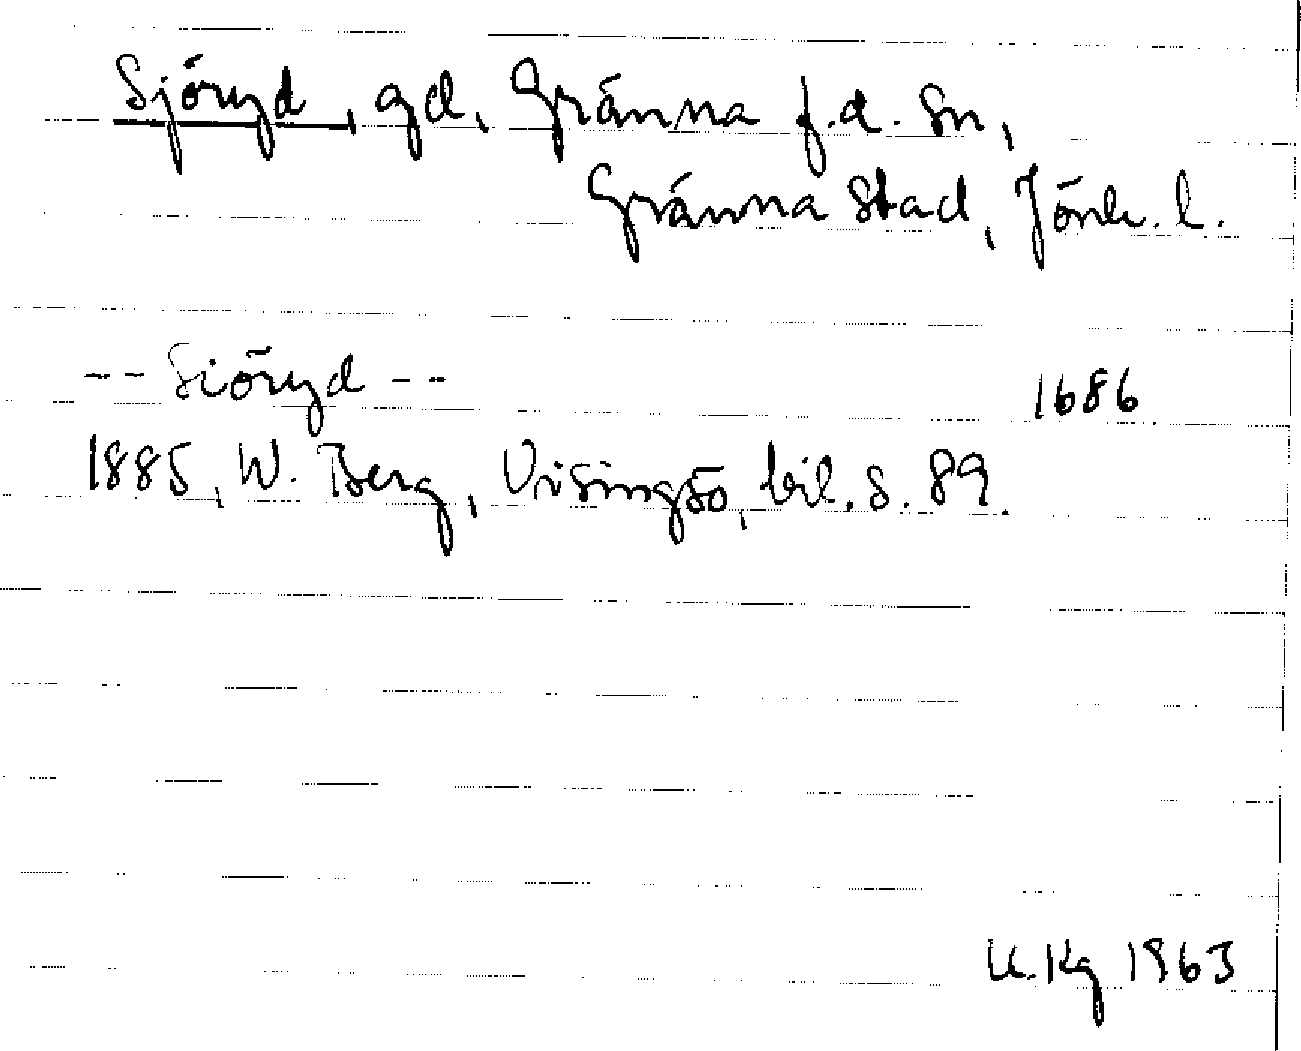 Sjöryd, gd, Gränna f.d. sn,
Gränna stad, Jönk. l.
-- Siöryd -- 1686
1885, W. Berg, Visingsö, bil. s. 89.
K.Kg 1963